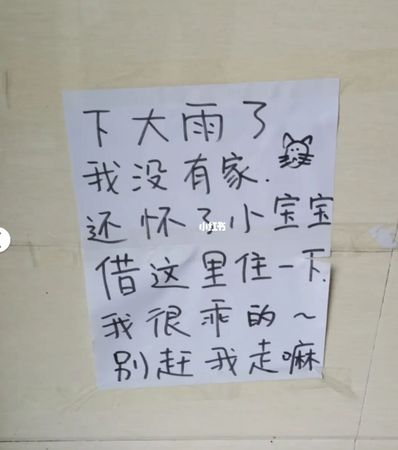 下大雨了
我没有家.
还怀了小宝宝
小红书
借这里住一下.
我很乖的～
别赶我走嘛